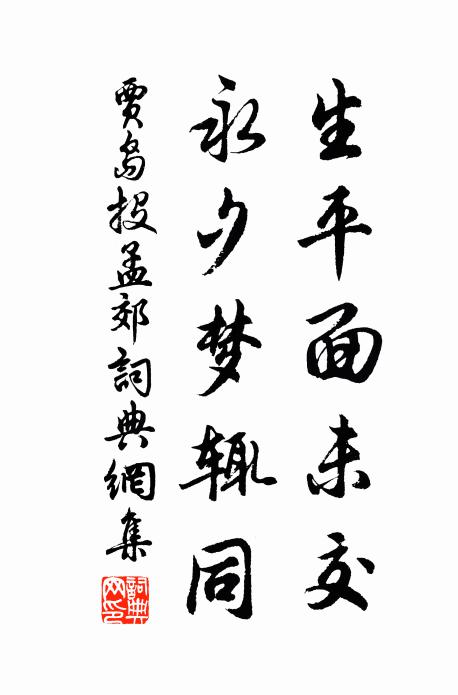 生平面未交
永夕梦辄同
賈島投孟郊詞典網集
詞典
网印